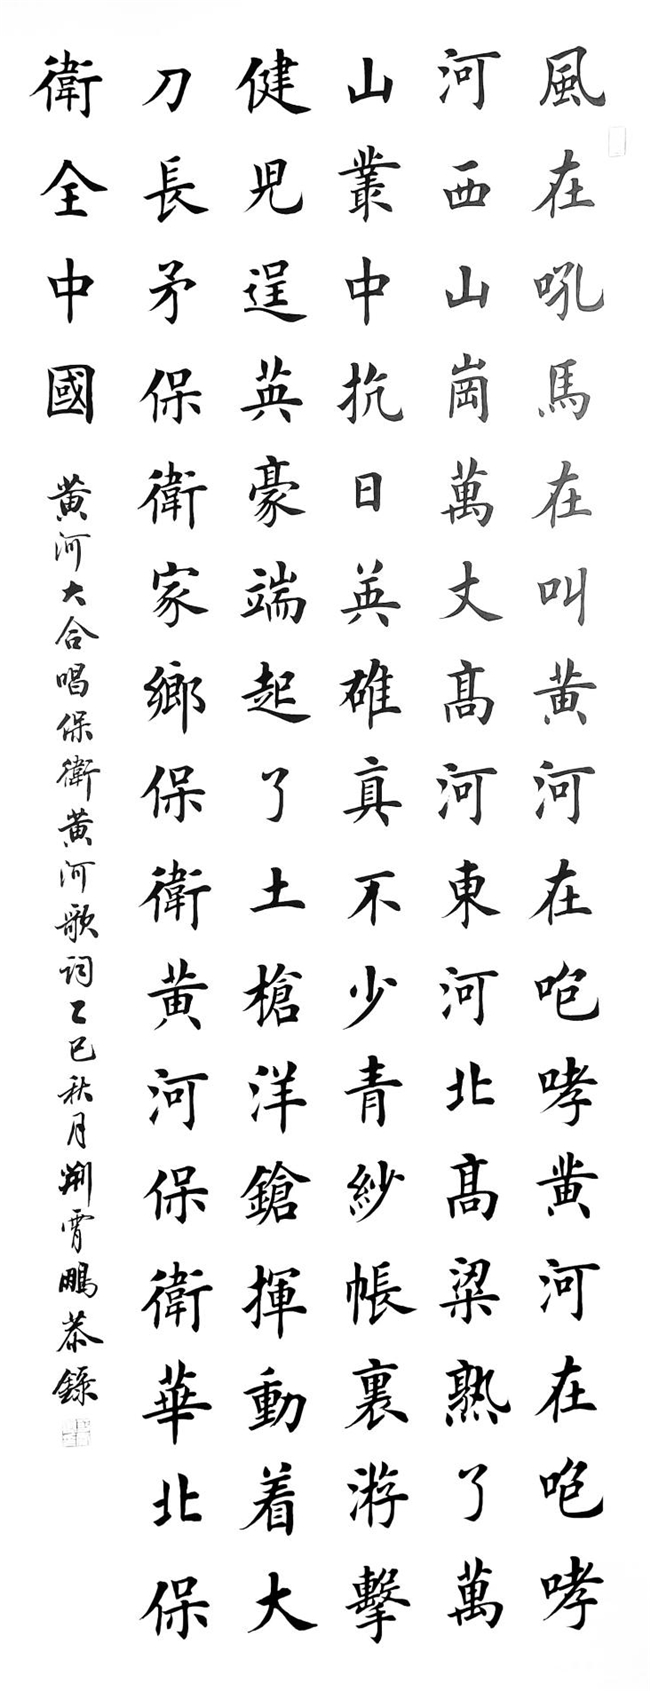 風在吼馬在叫黄河在咆哮黄河在咆哮
河西山崗萬丈髙河東河北髙粱熟了萬
山叢中抗日英雄真不少青紗帳裏游擊
健児逞英豪端起了土槍洋鎗揮動着大
刀長矛保衛家鄉保衛黄河保衛華北保
衛全中國
黄河大合唱保衛黄河歌詞乙巳秋月荆霄鵬恭錄